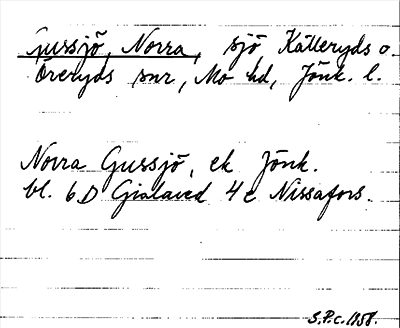 Gussjö, Norra, sjö Kålleryds o.
Öreryds snr, Mo hd, Jönk. l.
Norra Gussjö, ek Jönk.
bl. 6D Gislaved 4e Nissafors.
S.P.c. 1958.